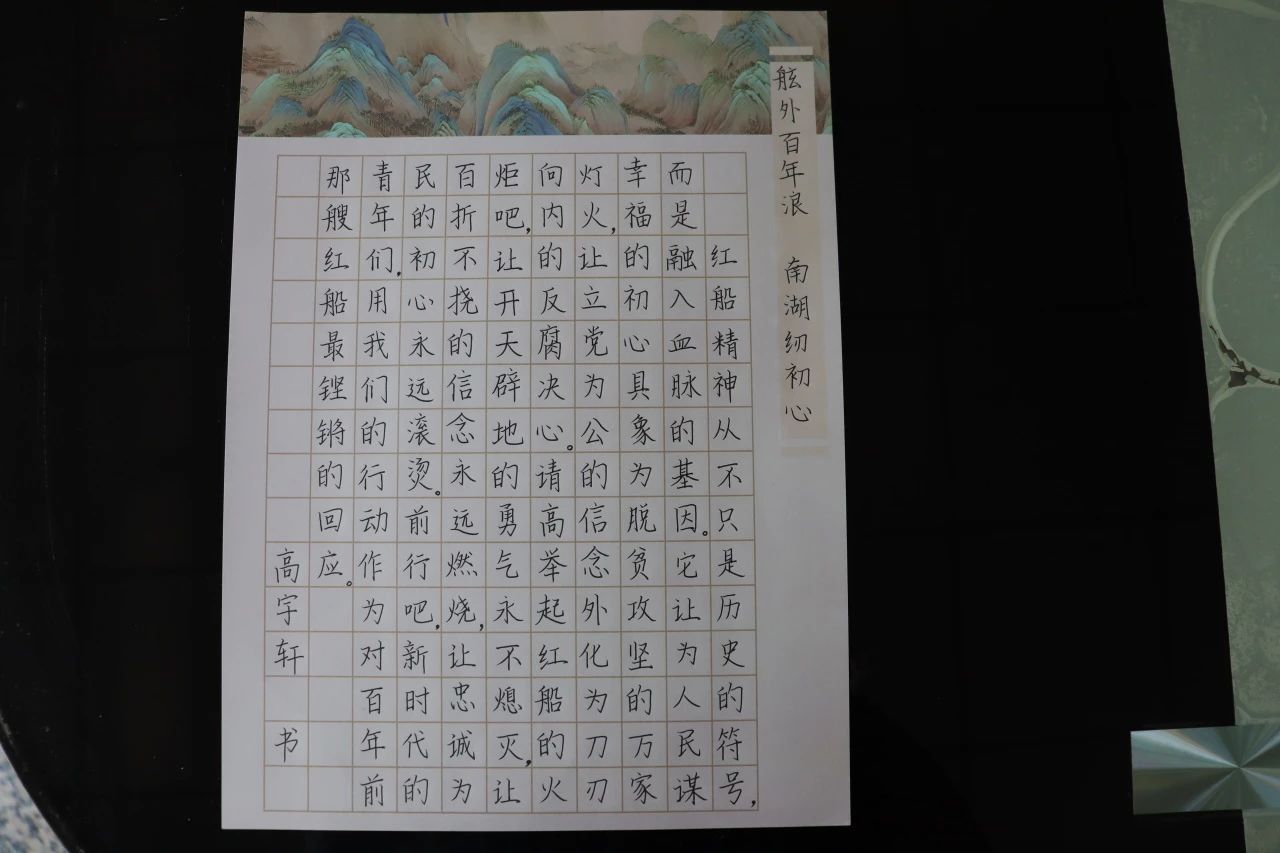 舷外百年浪 南湖纫初心
红船精神从不只是历史的符号,
而是融入血脉的基因。它让为人民谋
幸福的初心具象为脱贫攻坚的万家
灯火,让立党为公的信念外化为刀刃
向内的反腐决心。请高举起红船的火
炬吧,让开天辟地的勇气永不熄灭,让
百折不挠的信念永远燃烧,让忠诚为
民的初心永远滚烫。前行吧,新时代的
青年们,用我们的行动作为对百年前
那艘红船最铿锵的回应。
高宇轩 书